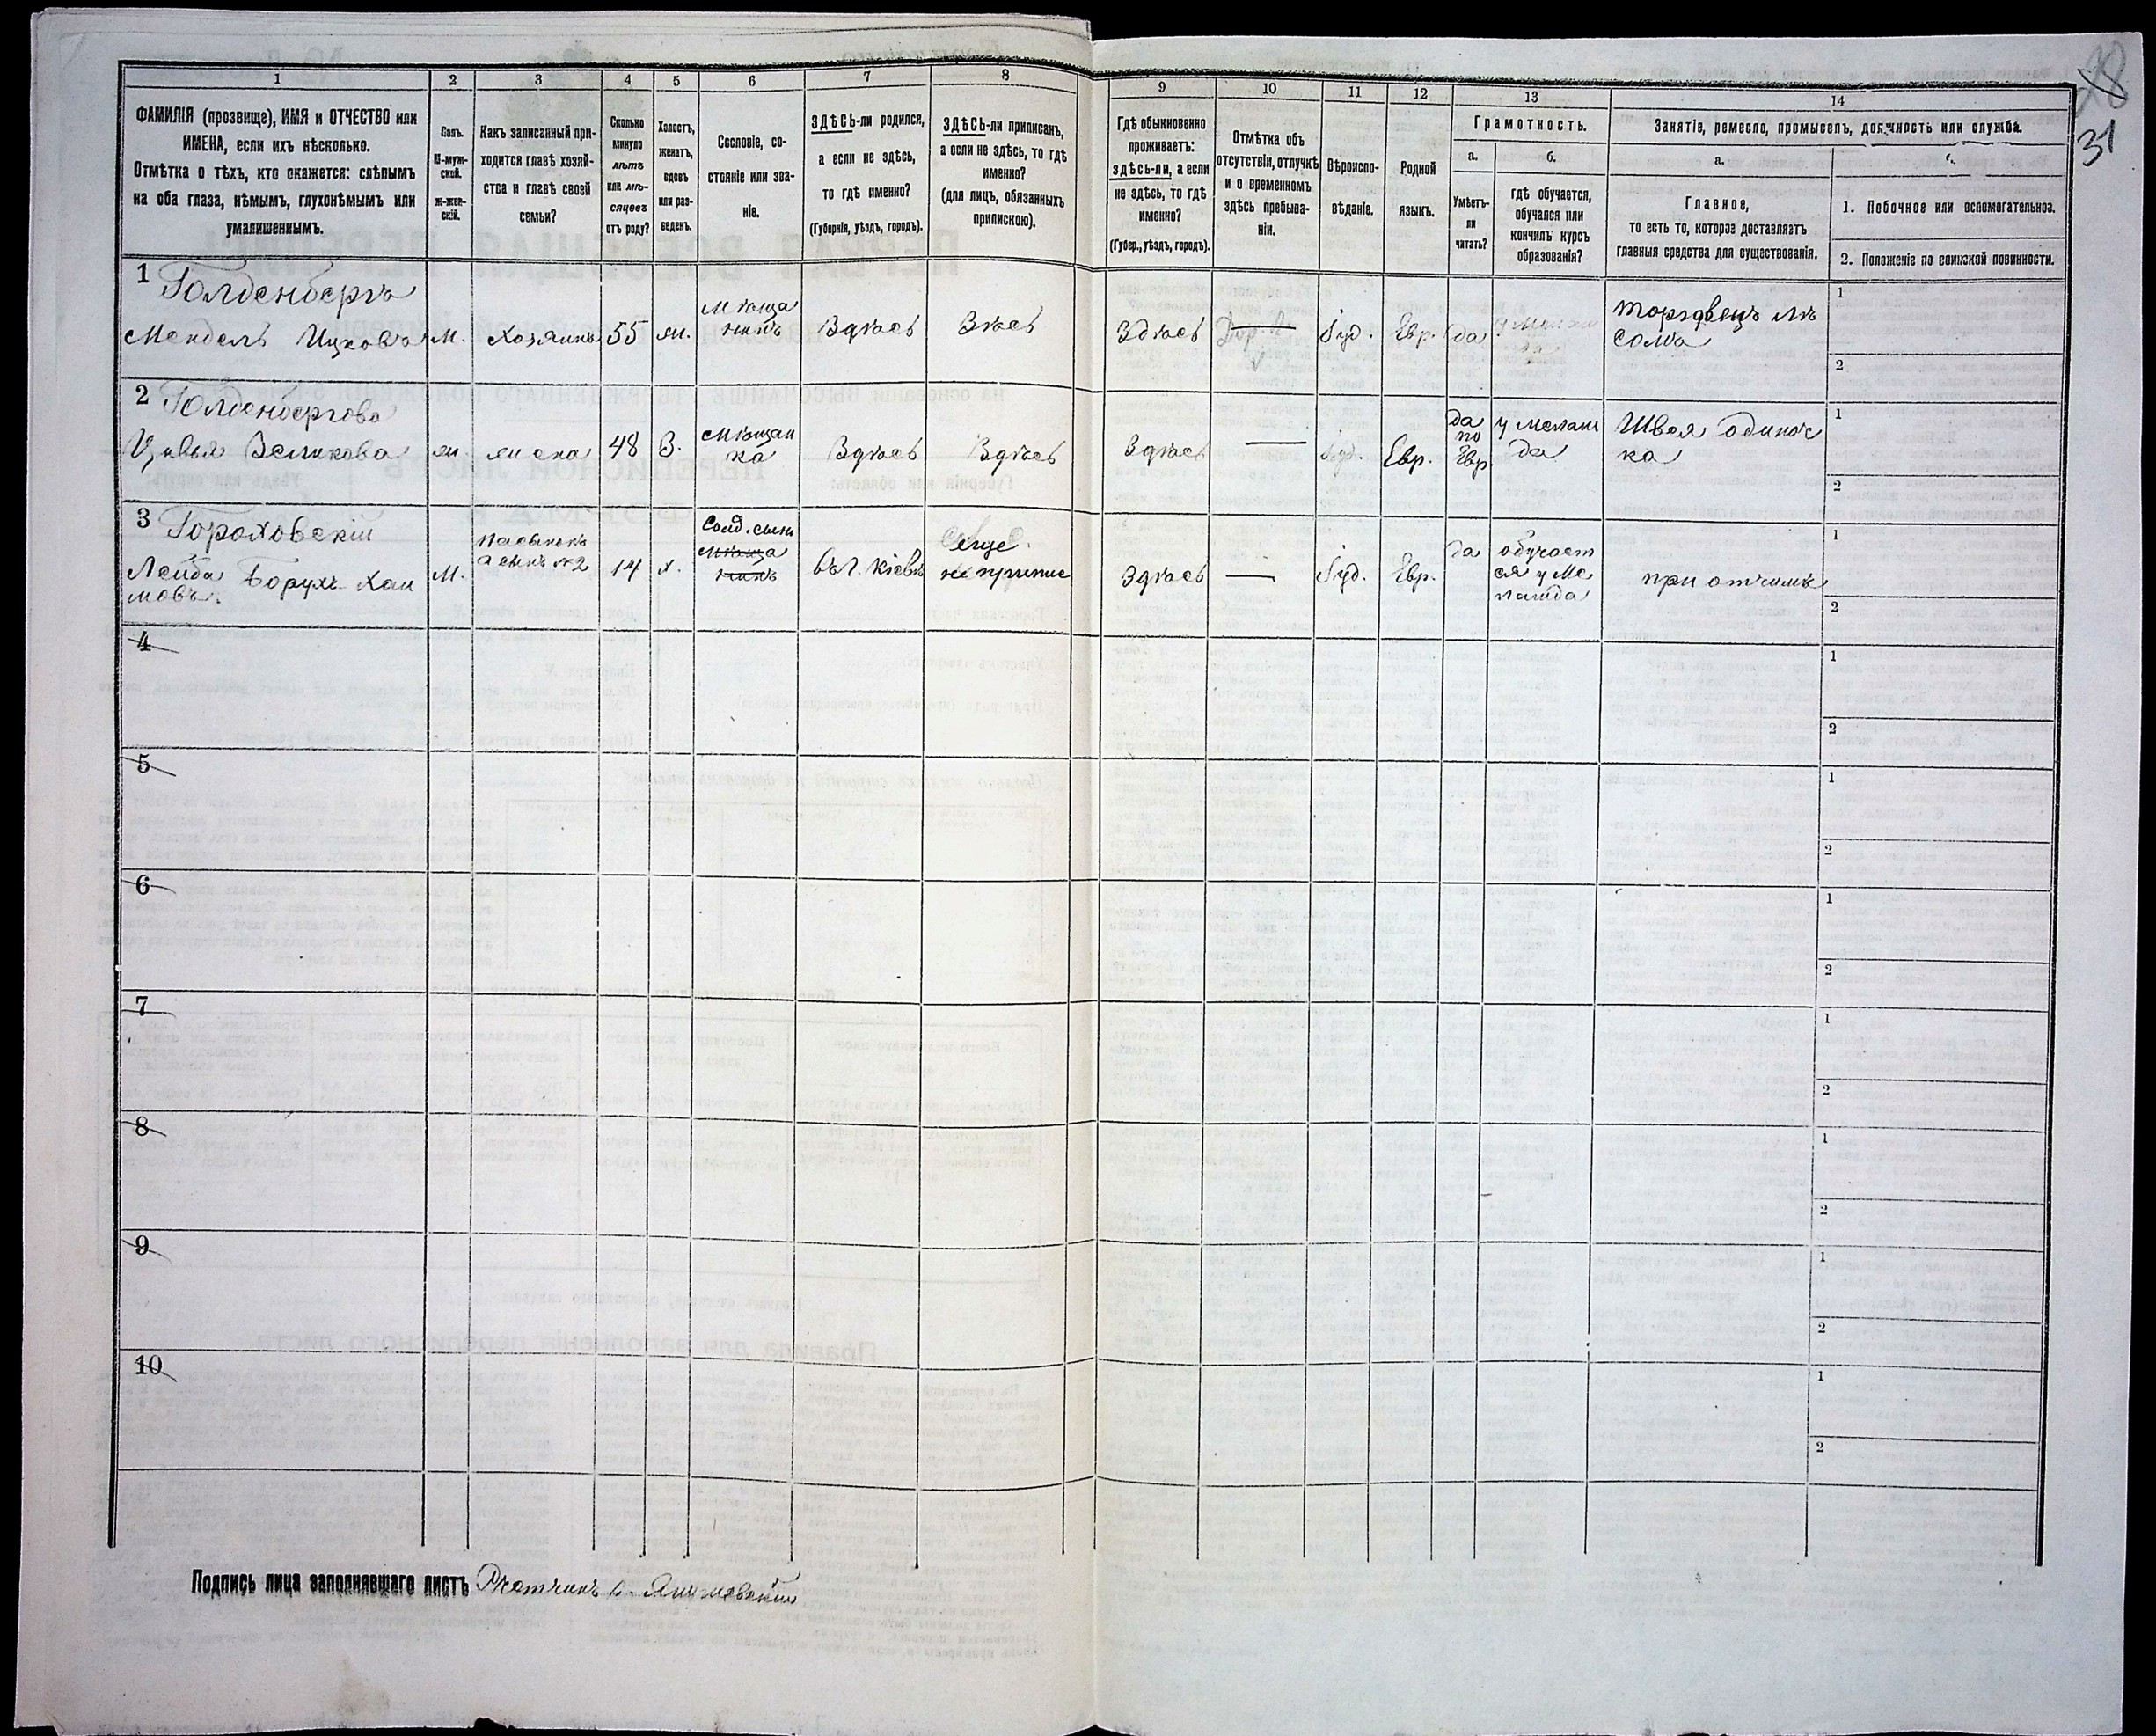 28
31
1
2
3
4
5
6
7
8
9
10
11
12
13
14
ФАМИЛІЯ (прозвище), ИМЯ и ОТЧЕСТВО или
ИМЕНА, если ихъ нѣсколько.
Отмѣтка о тѣхъ, кто окажется: слѣпымъ
на оба глаза, нѣмымъ, глухонѣмымъ или
умалишеннымъ.
Полъ.
М-муж-
ской.
ж-жен-
скій.
Какъ записанный при-
ходится главѣ хозяй-
ства и главѣ своей
семьи?
Сколько
минуло
лѣтъ
или мѣ-
сяцевъ
отъ роду?
Холостъ,
женатъ,
вдовъ
или раз-
веденъ.
Сословіе, со-
стояніе или зва-
ніе.
ЗДѢСЬ-ли родился,
а если не здѣсь,
то гдѣ именно?
(Губернія, уѣздъ, городъ).
ЗДѢСЬ-ли приписанъ,
а если не здѣсь, то гдѣ
именно?
(для лицъ, обязанныхъ
припискою).
Гдѣ обыкновенно
проживаетъ:
здѣсь-ли, а если
не здѣсь, то гдѣ
именно?
(Губер., уѣздъ, городъ).
Отмѣтка объ
отсутствіи, отлучкѣ
и о временномъ
здѣсь пребыва-
ніи.
Вѣроиспо-
вѣданіе.
Родной
языкъ.
Грамотность.
а.
Умѣетъ-
ли
читать?
б.
гдѣ обучается,
обучался или
кончилъ курсъ
образованія?
Занятіе, ремесло, промыселъ, должность или служба.
а.
Главное,
то есть то, которое доставляетъ
главныя средства для существованія.
1. Побочное или вспомогательное.
2. Положеніе по воинской повинности.
1 Голденбергъ
Мендель Ицковъ
М.
Хозяинъ
55
ж.
Мѣща
нинъ
Здѣсь
Здѣсь
Здѣсь
Іуд.
Евр.
да
Торговецъ лѣ
сомъ
1
2
2 Голденбергова
Цивья Зеликова
ж.
жена
48
З.
Мѣщан
ка
Здѣсь
Здѣсь
Здѣсь
—
Іуд.
Евр.
да
по
Евр.
у мелам
да
Швея одиноч
ка
1
2
3 Гороховскій
Лейба Борухъ Хаи
мовъ.
М.
пасынокъ
а сынъ №2
14
х.
Солд. сынъ
Мѣща
нинъ
въ г. Кіевѣ
еще
не припис
Здѣсь
—
Іуд.
Евр.
да
обучает
ся у Ме
ламда
при отчимѣ
1
2
4
1
2
5
1
2
6
1
2
7
1
2
8
1
2
9
1
2
10
1
2
Подпись лица заполнявшаго листъ